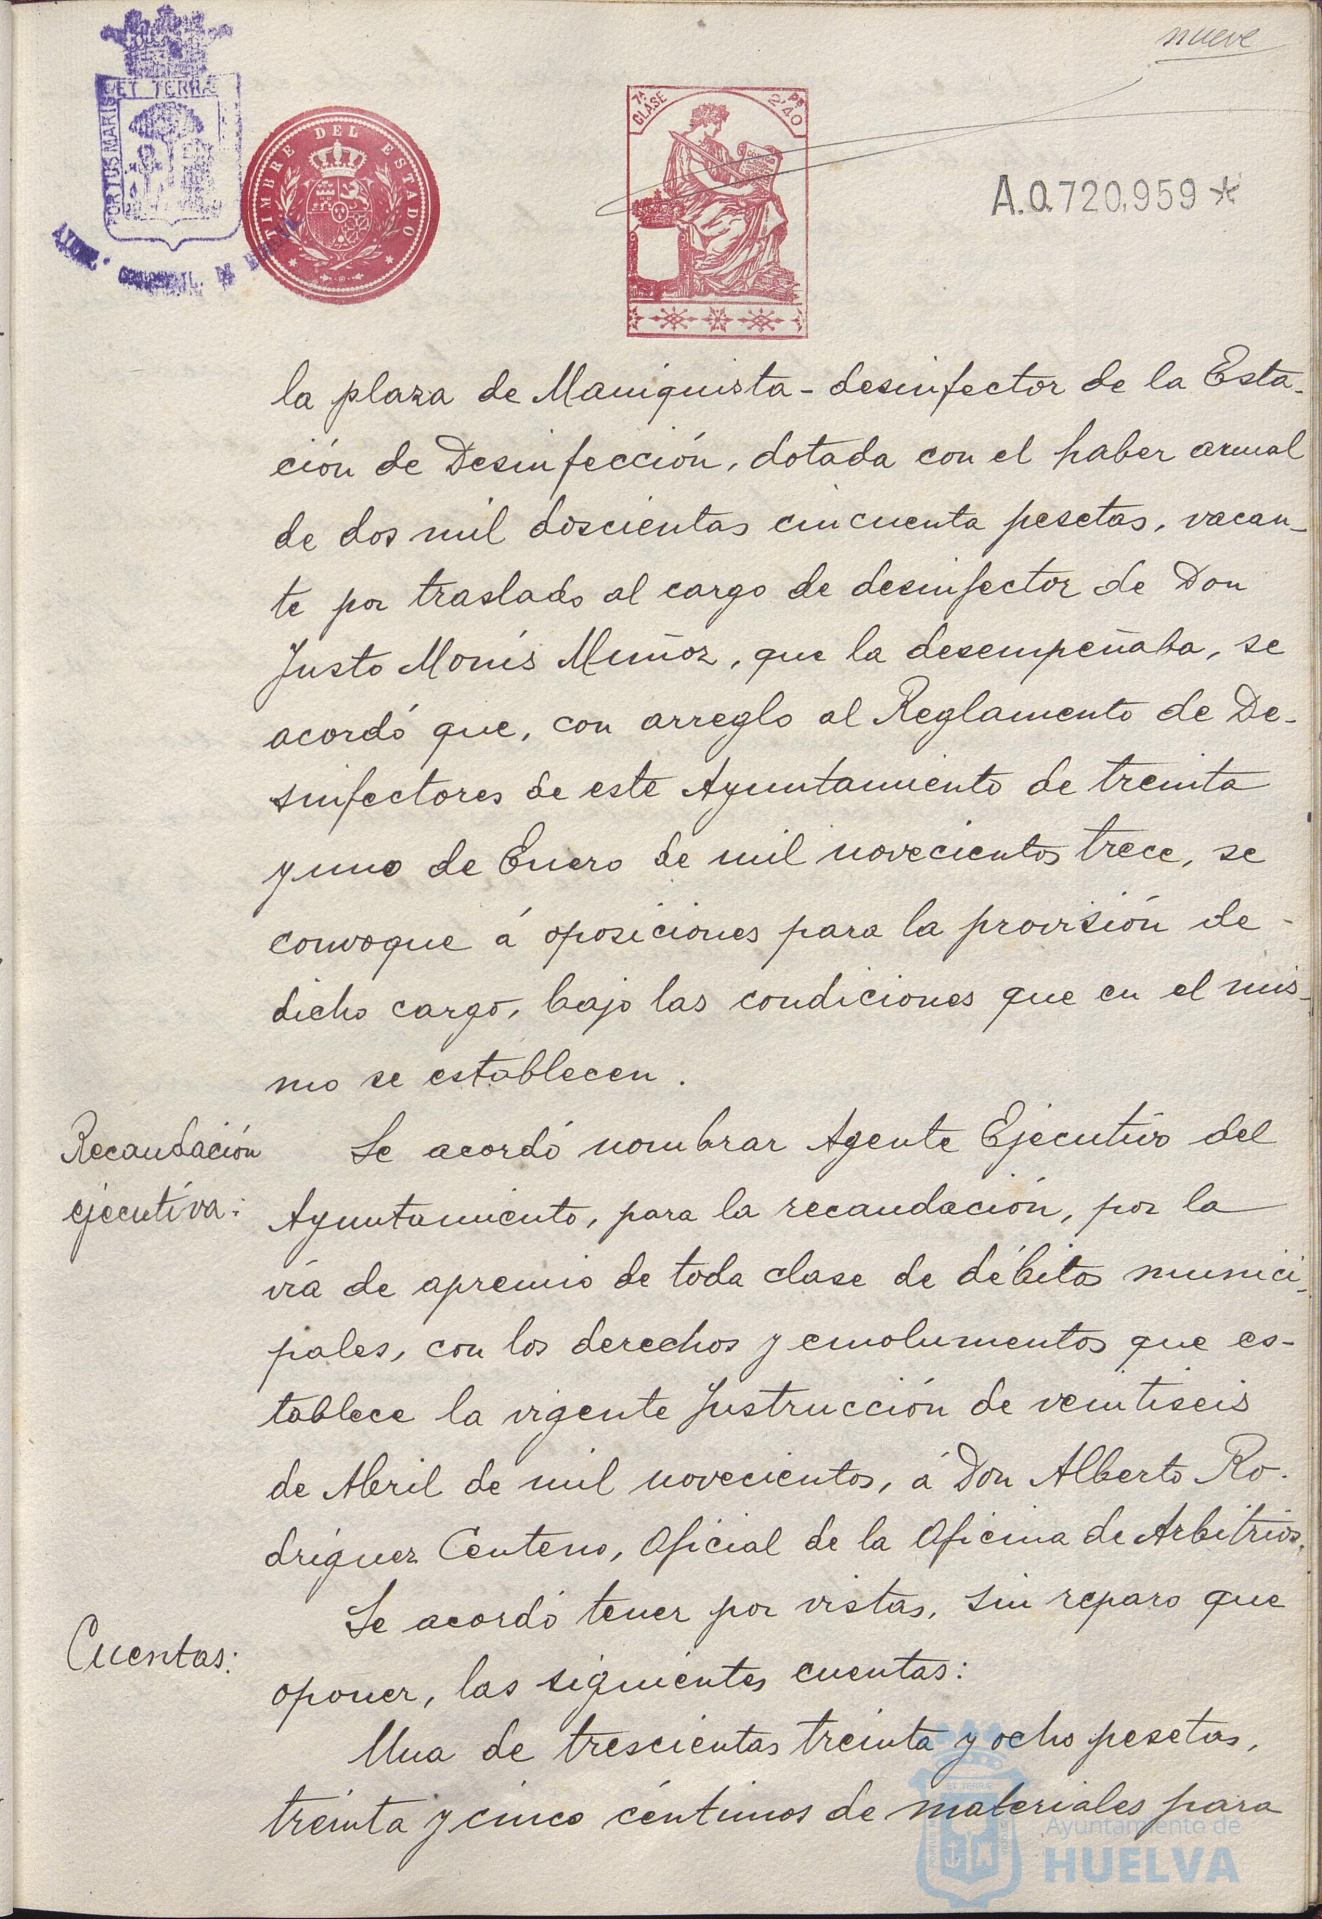 nueve
PORTUS MARIS ET TERRÆ
TIMBRE DEL ESTADO
7ª CLASE
Ps 2'40
A.0.720,959*
la plaza de Maniquista-desinfector de la Esta-
ción de Desinfección, dotada con el haber anual
de dos mil doscientas cincuenta pesetas, vacan-
te por traslado al cargo de desinfector de Don
Justo Monís Muñoz, que la desempeñaba, se
acordó que, con arreglo al Reglamento de De-
sinfectores de este Ayuntamiento de treinta
y uno de Enero de mil novecientos trece, se
convoque á oposiciones para la provisión de-
dicho cargo, bajo las condiciones que en el mis-
mo se establecen.
Recaudación
ejecutiva:
Se acordó nombrar Agente Ejecutivo del
Ayuntamiento, para la recaudación, por la
vía de apremio de toda clase de débitos munici-
pales, con los derechos y emolumentos que es-
tablece la vigente Instrucción de veintiseis
de Abril de mil novecientos, á Don Alberto Ro-
dríguez Centeno, Oficial de la Oficina de Arbitrios.
Cuentas:
Se acordó tener por vistas, sin reparo que
oponer, las siguientes cuentas:
Una de trescientas treinta y ocho pesetas,
treinta y cinco céntimos de materiales para
Ayuntamiento de
HUELVA